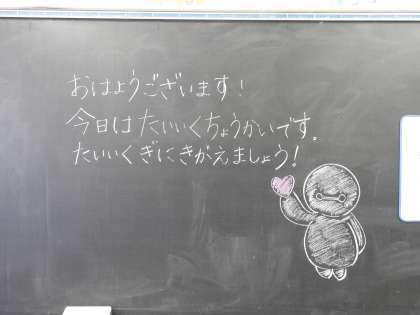 おはようございます!
今日はたいいくちょうかいです。
たいいくぎにきがえましょう!